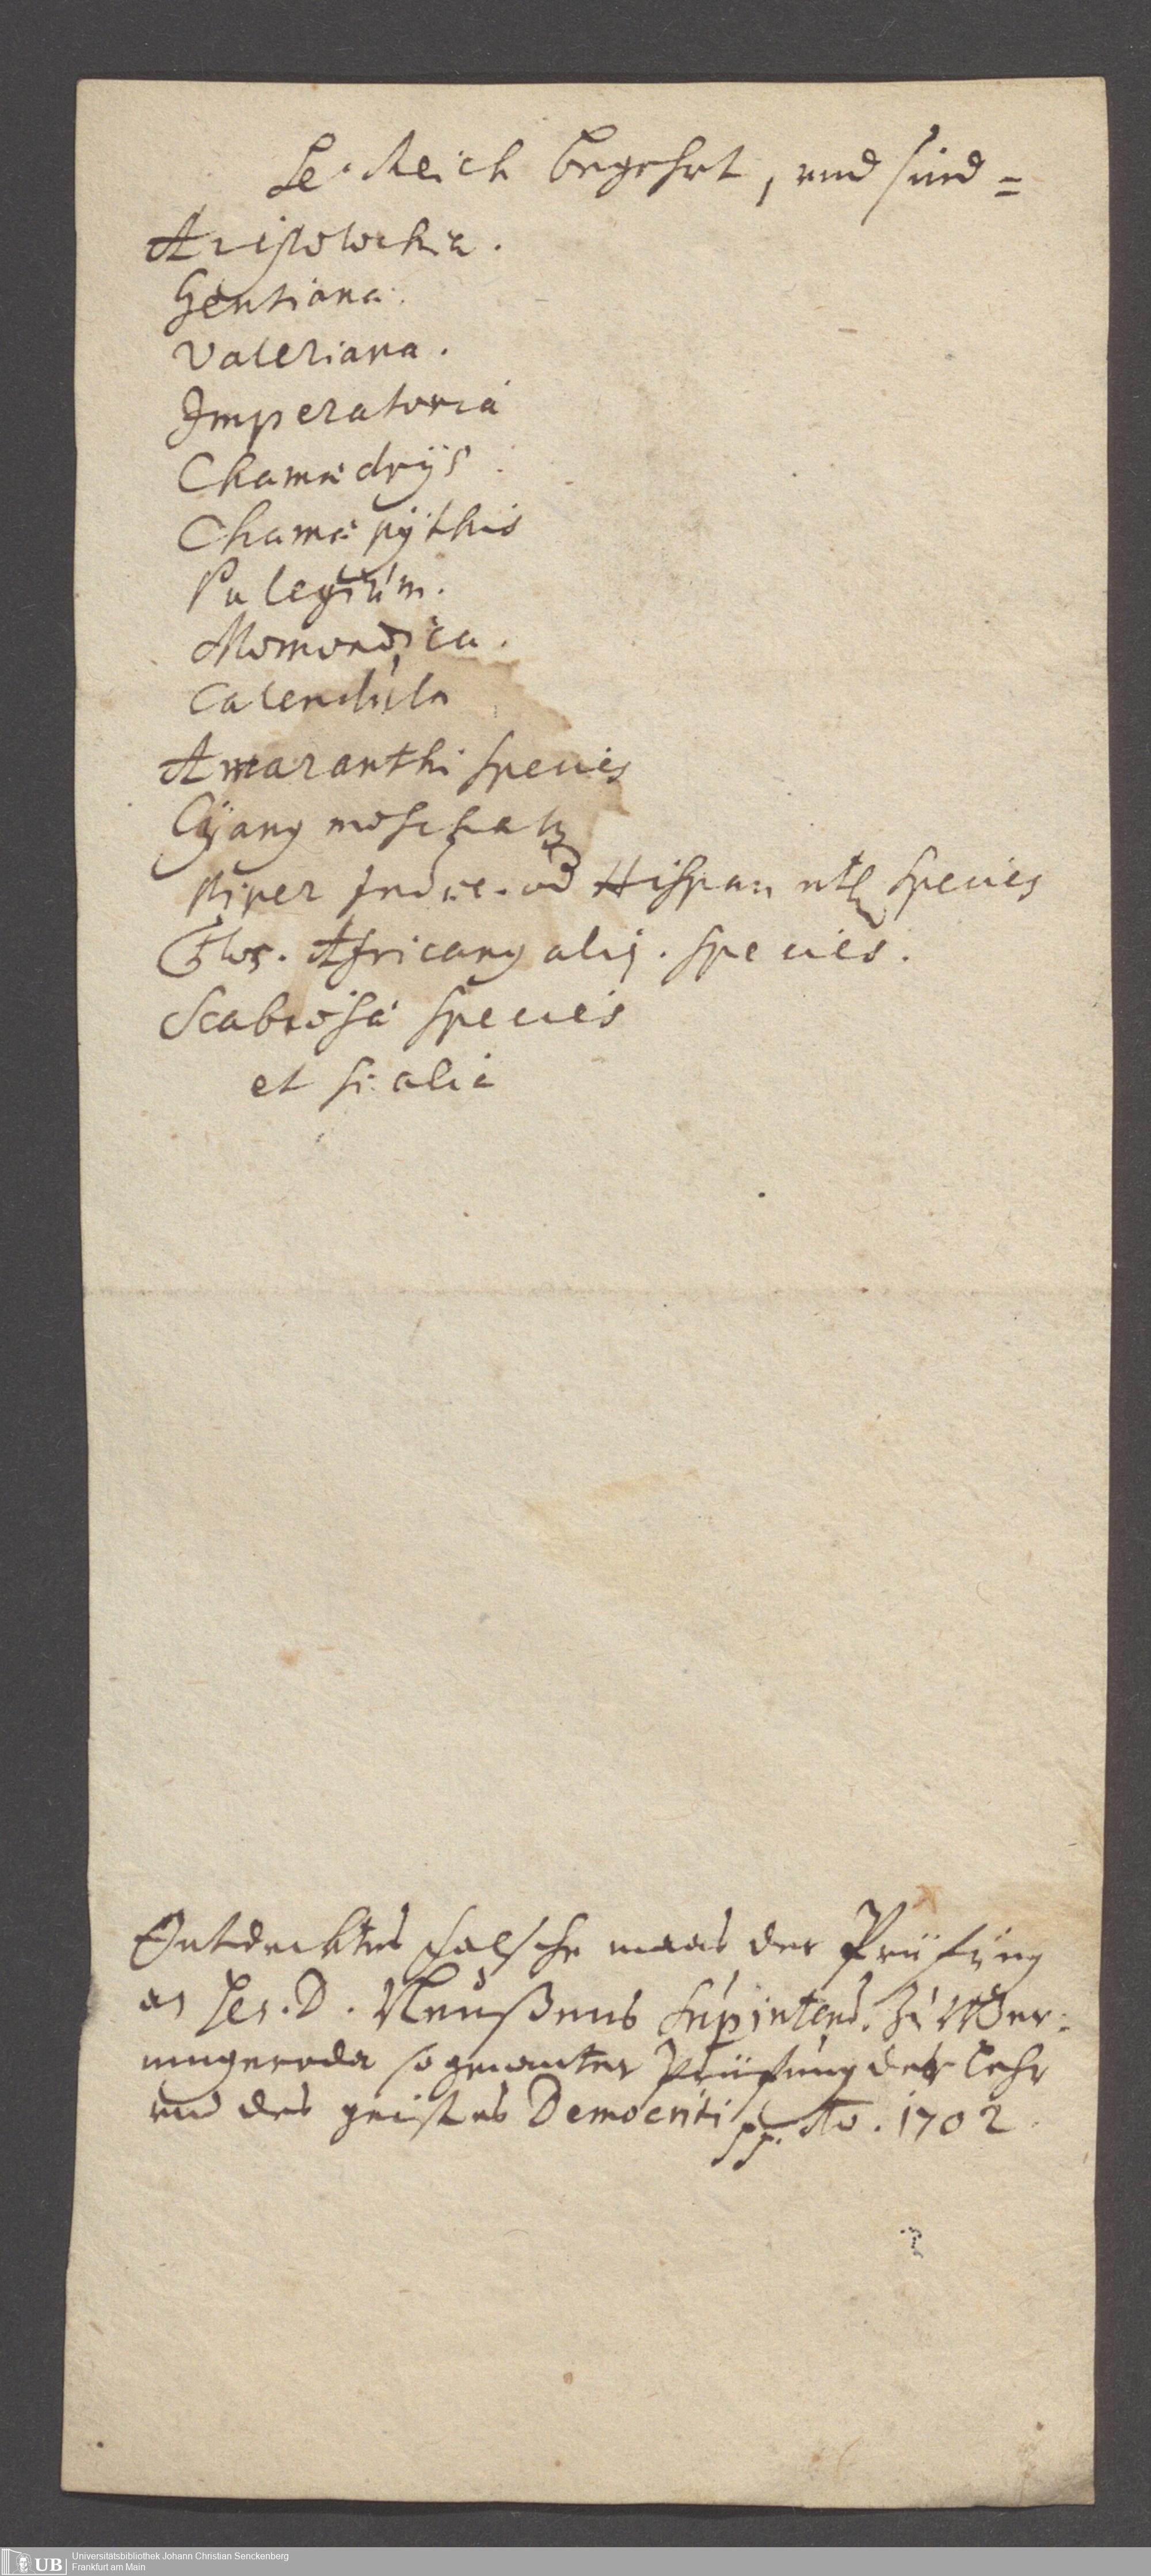 He. Reich begehrt, und sind =
Aristolochia.
Gentiana.
Valeriana.
Imperatoria
Chamædrÿs
Chamæpÿthis
Pulegium.
Momordica.
Calendula
Amaranthi species
Cÿang moschatg
Piper Indic. od Hispan species
Flos. Africang aliq. species.
Scabiosa species
et si alia
Entdecktes falsche maas der Prüfung
as Her. D. Neußens Supintend. zu Wer-
ningeroda sogenanter Prüfung der Lehr
und des geistes Democriti pp. Ao. 1702.
UB Universitätsbibliothek Johann Christian Senckenberg
Frankfurt am Main